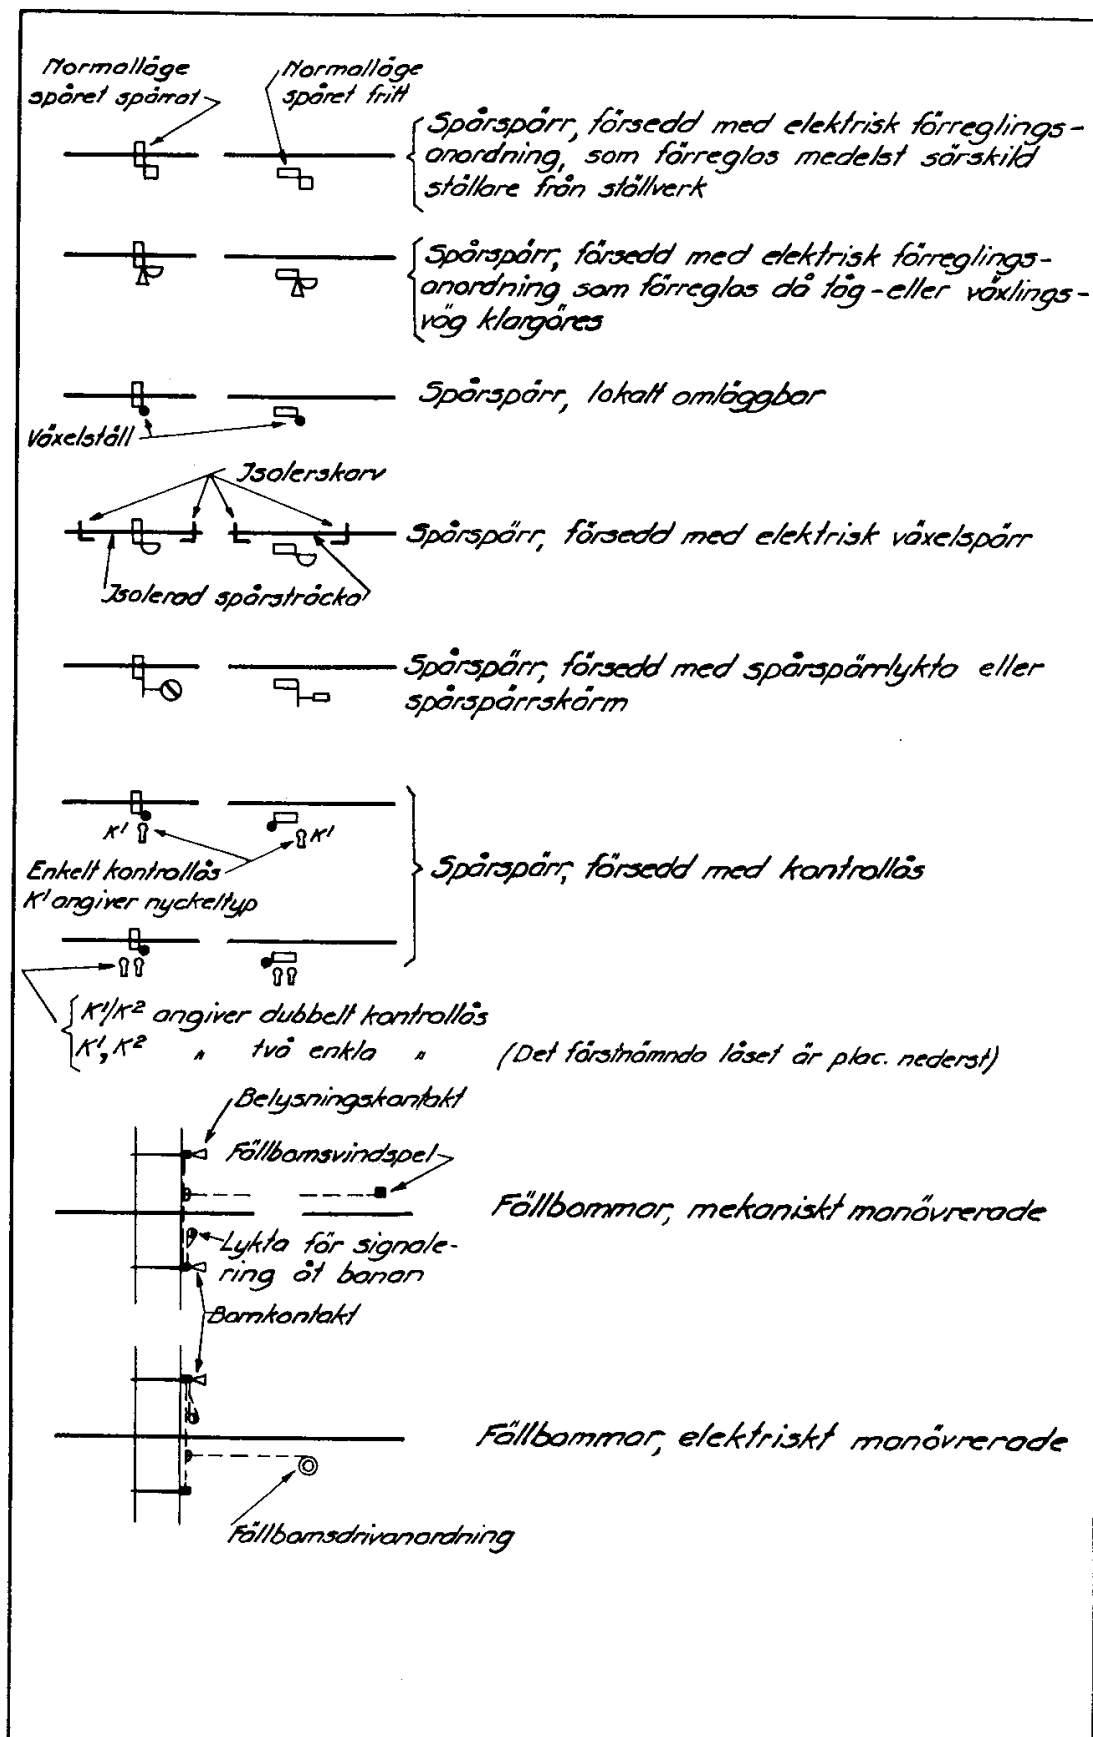 Normalläge
spåret spärrat
Normalläge
spåret fritt
Spårspärr, försedd med elektrisk förreglings-
anordning, som förreglas medelst särskild
ställare från ställverk
Spårspärr, försedd med elektrisk förreglings-
anordning som förreglas då tåg- eller växlings-
väg klargöres
Spårspärr, lokalt omläggbar
Växelställ
Isolerskarv
Spårspärr, försedd med elektrisk växelspärr
Isolerad spårsträcka
Spårspärr, försedd med spårspärrlykta eller
spårspärrskärm
K1 K1
Enkelt kontrollås
K1 angiver nyckeltyp
Spårspärr, försedd med kontrollås
K1/K2 angiver dubbelt kontrollås
K1, K2 " två enkla " (Det förstnämnda låset är plac. nederst)
Belysningskontakt
Fällbomsvindspel
Fällbommar, mekaniskt manövrerade
Lykta för signale-
ring åt banan
Bomkontakt
Fällbommar, elektriskt manövrerade
Fällbomsdrivanordning